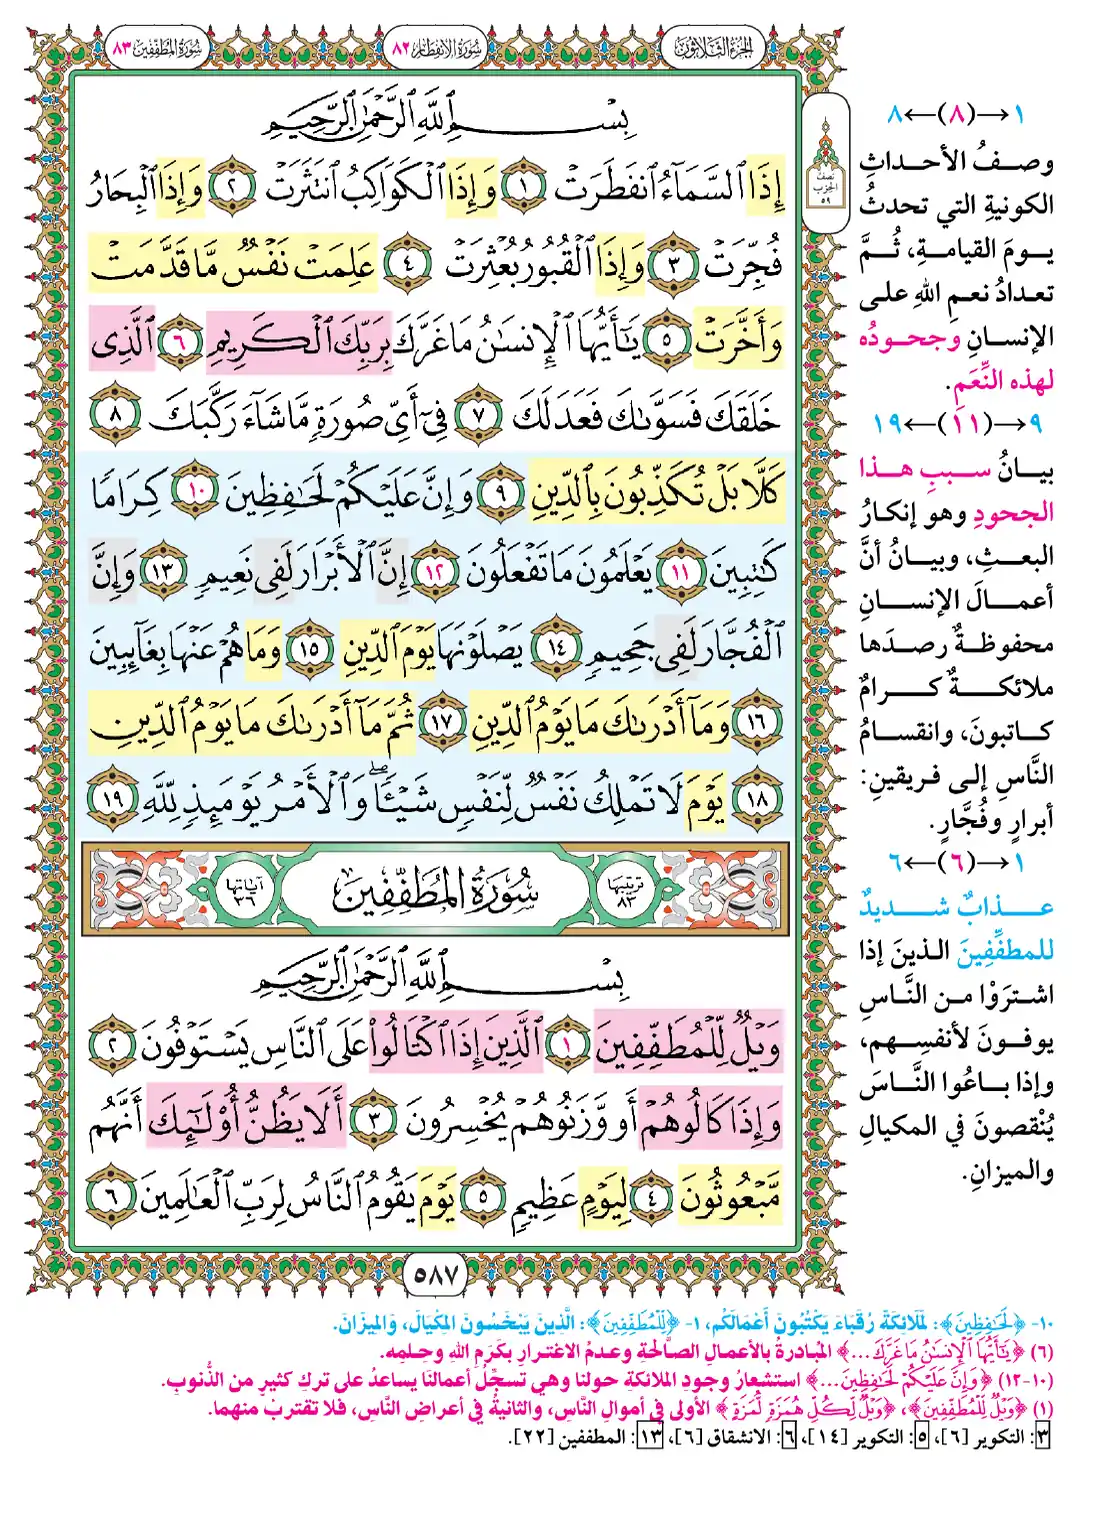 الجزء الثلاثون
سورة الانفطار ٨٢
سورة المطففين ٨٣
نصف الحزب ٥٩
بِسْمِ ٱللَّهِ ٱلرَّحْمَٰنِ ٱلرَّحِيمِ
إِذَا ٱلسَّمَآءُ ٱنفَطَرَتْ ١ وَإِذَا ٱلْكَوَاكِبُ ٱنتَثَرَتْ ٢ وَإِذَا ٱلْبِحَارُ
فُجِّرَتْ ٣ وَإِذَا ٱلْقُبُورُ بُعْثِرَتْ ٤ عَلِمَتْ نَفْسٌ مَّا قَدَّمَتْ
وَأَخَّرَتْ ٥ يَٰٓأَيُّهَا ٱلْإِنسَٰنُ مَا غَرَّكَ بِرَبِّكَ ٱلْكَرِيمِ ٦ ٱلَّذِى
خَلَقَكَ فَسَوَّىٰكَ فَعَدَلَكَ ٧ فِىٓ أَىِّ صُورَةٍ مَّا شَآءَ رَكَّبَكَ ٨
كَلَّا بَلْ تُكَذِّبُونَ بِٱلدِّينِ ٩ وَإِنَّ عَلَيْكُمْ لَحَٰفِظِينَ ١٠ كِرَامًا
كَٰتِبِينَ ١١ يَعْلَمُونَ مَا تَفْعَلُونَ ١٢ إِنَّ ٱلْأَبْرَارَ لَفِى نَعِيمٍ ١٣ وَإِنَّ
ٱلْفُجَّارَ لَفِى جَحِيمٍ ١٤ يَصْلَوْنَهَا يَوْمَ ٱلدِّينِ ١٥ وَمَا هُمْ عَنْهَا بِغَآئِبِينَ
١٦ وَمَآ أَدْرَىٰكَ مَا يَوْمُ ٱلدِّينِ ١٧ ثُمَّ مَآ أَدْرَىٰكَ مَا يَوْمُ ٱلدِّينِ
١٨ يَوْمَ لَا تَمْلِكُ نَفْسٌ لِّنَفْسٍ شَيْـًٔا ۖ وَٱلْأَمْرُ يَوْمَئِذٍ لِّلَّهِ ١٩
ترتيبها ٨٣
سُورَةُ المُطَفِّفِينَ
آياتها ٣٦
بِسْمِ ٱللَّهِ ٱلرَّحْمَٰنِ ٱلرَّحِيمِ
وَيْلٌ لِّلْمُطَفِّفِينَ ١ ٱلَّذِينَ إِذَا ٱكْتَالُوا۟ عَلَى ٱلنَّاسِ يَسْتَوْفُونَ ٢
وَإِذَا كَالُوهُمْ أَو وَّزَنُوهُمْ يُخْسِرُونَ ٣ أَلَا يَظُنُّ أُو۟لَٰٓئِكَ أَنَّهُم
مَّبْعُوثُونَ ٤ لِيَوْمٍ عَظِيمٍ ٥ يَوْمَ يَقُومُ ٱلنَّاسُ لِرَبِّ ٱلْعَٰلَمِينَ ٦
٥٨٧
١→(٨)←٨
وصفُ الأحداثِ
الكونيةِ التي تحدثُ
يومَ القيامةِ، ثُمَّ
تعدادُ نعمِ اللهِ على
الإنسانِ وجحودُه
لهذه النِّعَمِ.
٩→(١١)←١٩
بيانُ سببِ هذا
الجحودِ وهو إنكارُ
البعثِ، وبيانُ أنَّ
أعمالَ الإنسانِ
محفوظةٌ رصدَها
ملائكةٌ كرامٌ
كاتبونَ، وانقسامُ
النَّاسِ إلى فريقينِ:
أبرارٍ وفُجَّارٍ.
١→(٦)←٦
عذابٌ شديدٌ
للمطفِّفِينَ الذينَ إذا
اشترَوْا من النَّاسِ
يوفونَ لأنفسِهم،
وإذا باعُوا النَّاسَ
يُنْقصونَ في المكيالِ
والميزانِ.
١٠- ﴿لَحَٰفِظِينَ﴾: لَمَلَائِكَةً رُقَبَاءَ يَكْتُبُونَ أَعْمَالَكُم، ١- ﴿لِّلْمُطَفِّفِينَ﴾: الَّذِينَ يَبْخَسُونَ المِكْيَالَ، وَالمِيزَانَ.
(٦) ﴿يَٰٓأَيُّهَا ٱلْإِنسَٰنُ مَا غَرَّكَ...﴾ المُبادرةُ بالأعمالِ الصَّالحةِ وعدمُ الاغترارِ بكَرَمِ اللهِ وحِلمِه.
(١٠-١٢) ﴿وَإِنَّ عَلَيْكُمْ لَحَٰفِظِينَ...﴾ استشعارُ وجودِ الملائكةِ حولنا وهي تسجِّلُ أعمالنَا يساعدُ على تركِ كثيرٍ من الذُّنوبِ.
(١) ﴿وَيْلٌ لِّلْمُطَفِّفِينَ﴾، ﴿وَيْلٌ لِّكُلِّ هُمَزَةٍ لُّمَزَةٍ﴾ الأولى في أموالِ النَّاسِ، والثانيةُ في أعراضِ النَّاسِ، فلا تقتربْ منهما.
٣: التكوير [٦]، ٥: التكوير [١٤]، ٦: الانشقاق [٦]، ١٣: المطففين [٢٢].